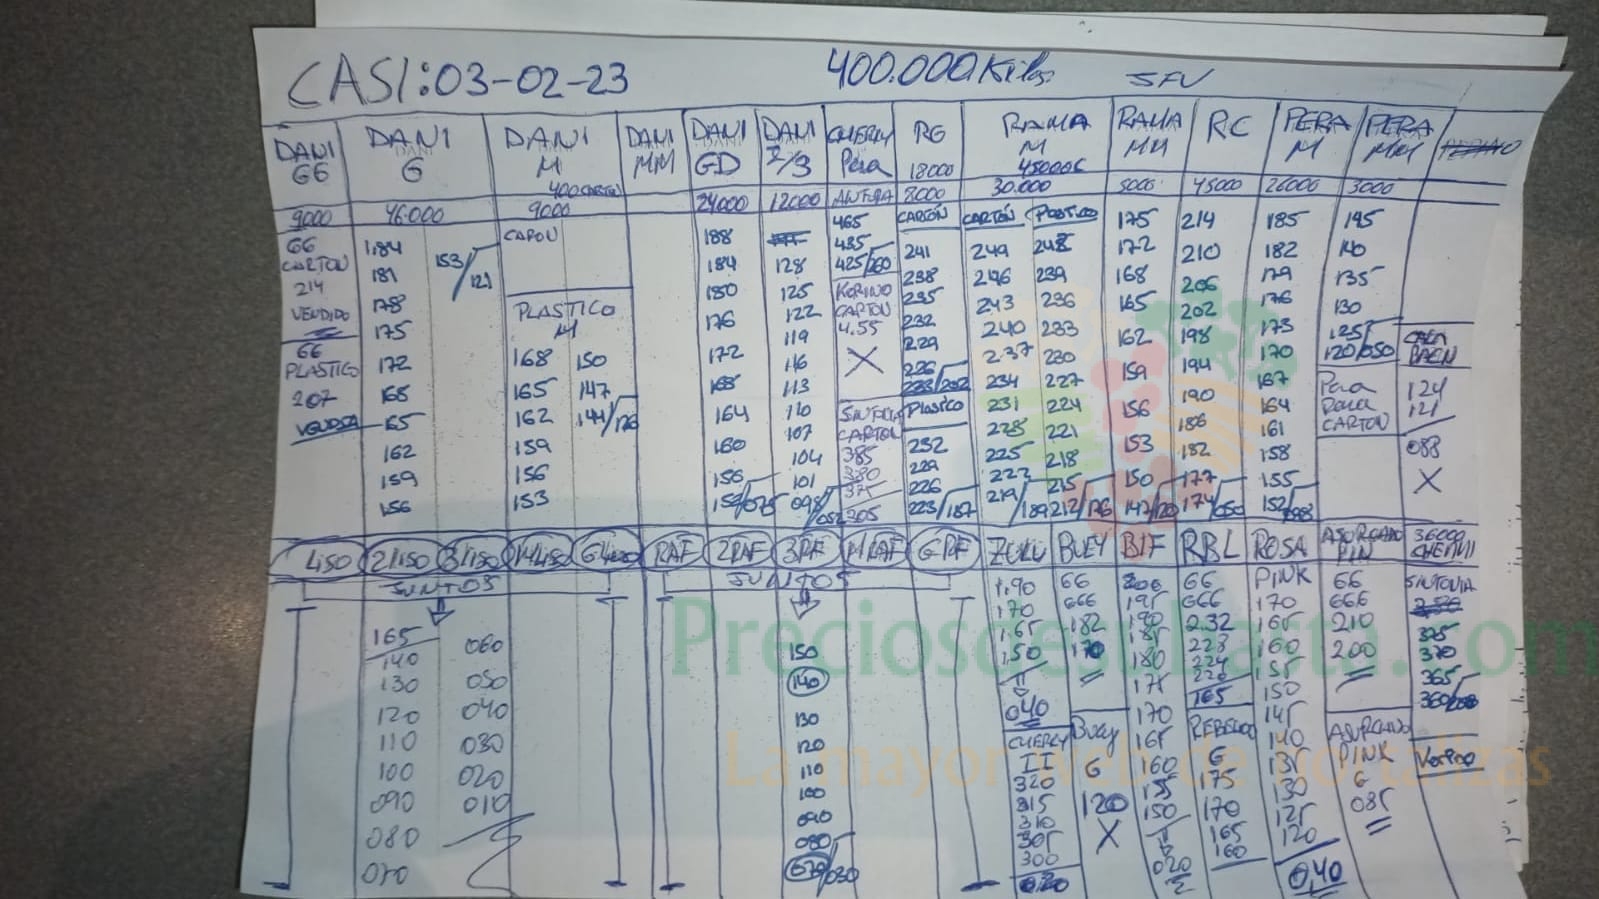 CASI: 03-02-23 400.000 Kilos SFV
DANI GG DANI G DANI M DANI MM DANI GD DANI 2/3 CHERRY Pera RG RAMA M RAMA MM RC PERA M PERA MM
400 CARTON 18000 45000G
9000 46.000 9000 24000 12000 8000 30.000 5000 45000 26000 3000
GG CARTON 214 VENDIDO
GG PLASTICO 207
184 153/121
181
178
175
172
168
165
162
159
156
CARON
PLASTICO M
168 150
165 147
162 144/126
159
156
153
188
184
180
176
172
168
164
160
156
128
125
122
119
116
113
110
107
104
101
098/052
465
435
425/260
CARTON
4.55
X
SINTONIA
CARTON
385
380
375
205
CARTON
241
238
235
232
229
226
223/202
Plastico
232
229
226
223/187
CARTON Plastico
249 248
246 239
243 236
240 233
237 230
234 227
231 224
228 221
225 218
222 215
219/189 212/176
175
172
168
165
162
159
156
153
150
147/120
214
210
206
202
198
194
190
186
182
177
174/050
185
182
179
176
173
170
167
164
161
158
155
152/098
195
140
135
130
125
120/050
Pera
Rama
CARTON
124
121
088
X
LISO 2LISO 3LISO MLISO GLISO RAF 2RAF 3RF MRAF GRF ZULU BUEY BIF RBL ROSA ASURCADO PIN 36000 CHERRY
JUNTOS JUNTOS
165
140 060
130 050
120 040
110 030
100 020
090 010
080
070
150
140
130
120
110
100
090
080
070/030
1.90
170
1.65
1.50
040
CHERRY
II
320
315
310
305
300
020
GG
GGG
182
170
Buey
G
120
X
200
195
190
185
180
175
170
165
160
155
150
020
GG
GGG
232
228
224
220
165
G
175
170
165
160
PINK
170
165
160
155
150
145
140
135
130
125
120
0,40
GG
GGG
210
200
ASURCADO
PINK
G
085
SINTONIA
375
370
365
360/200
Preciosdesubasta.com
La mayor web de hortalizas